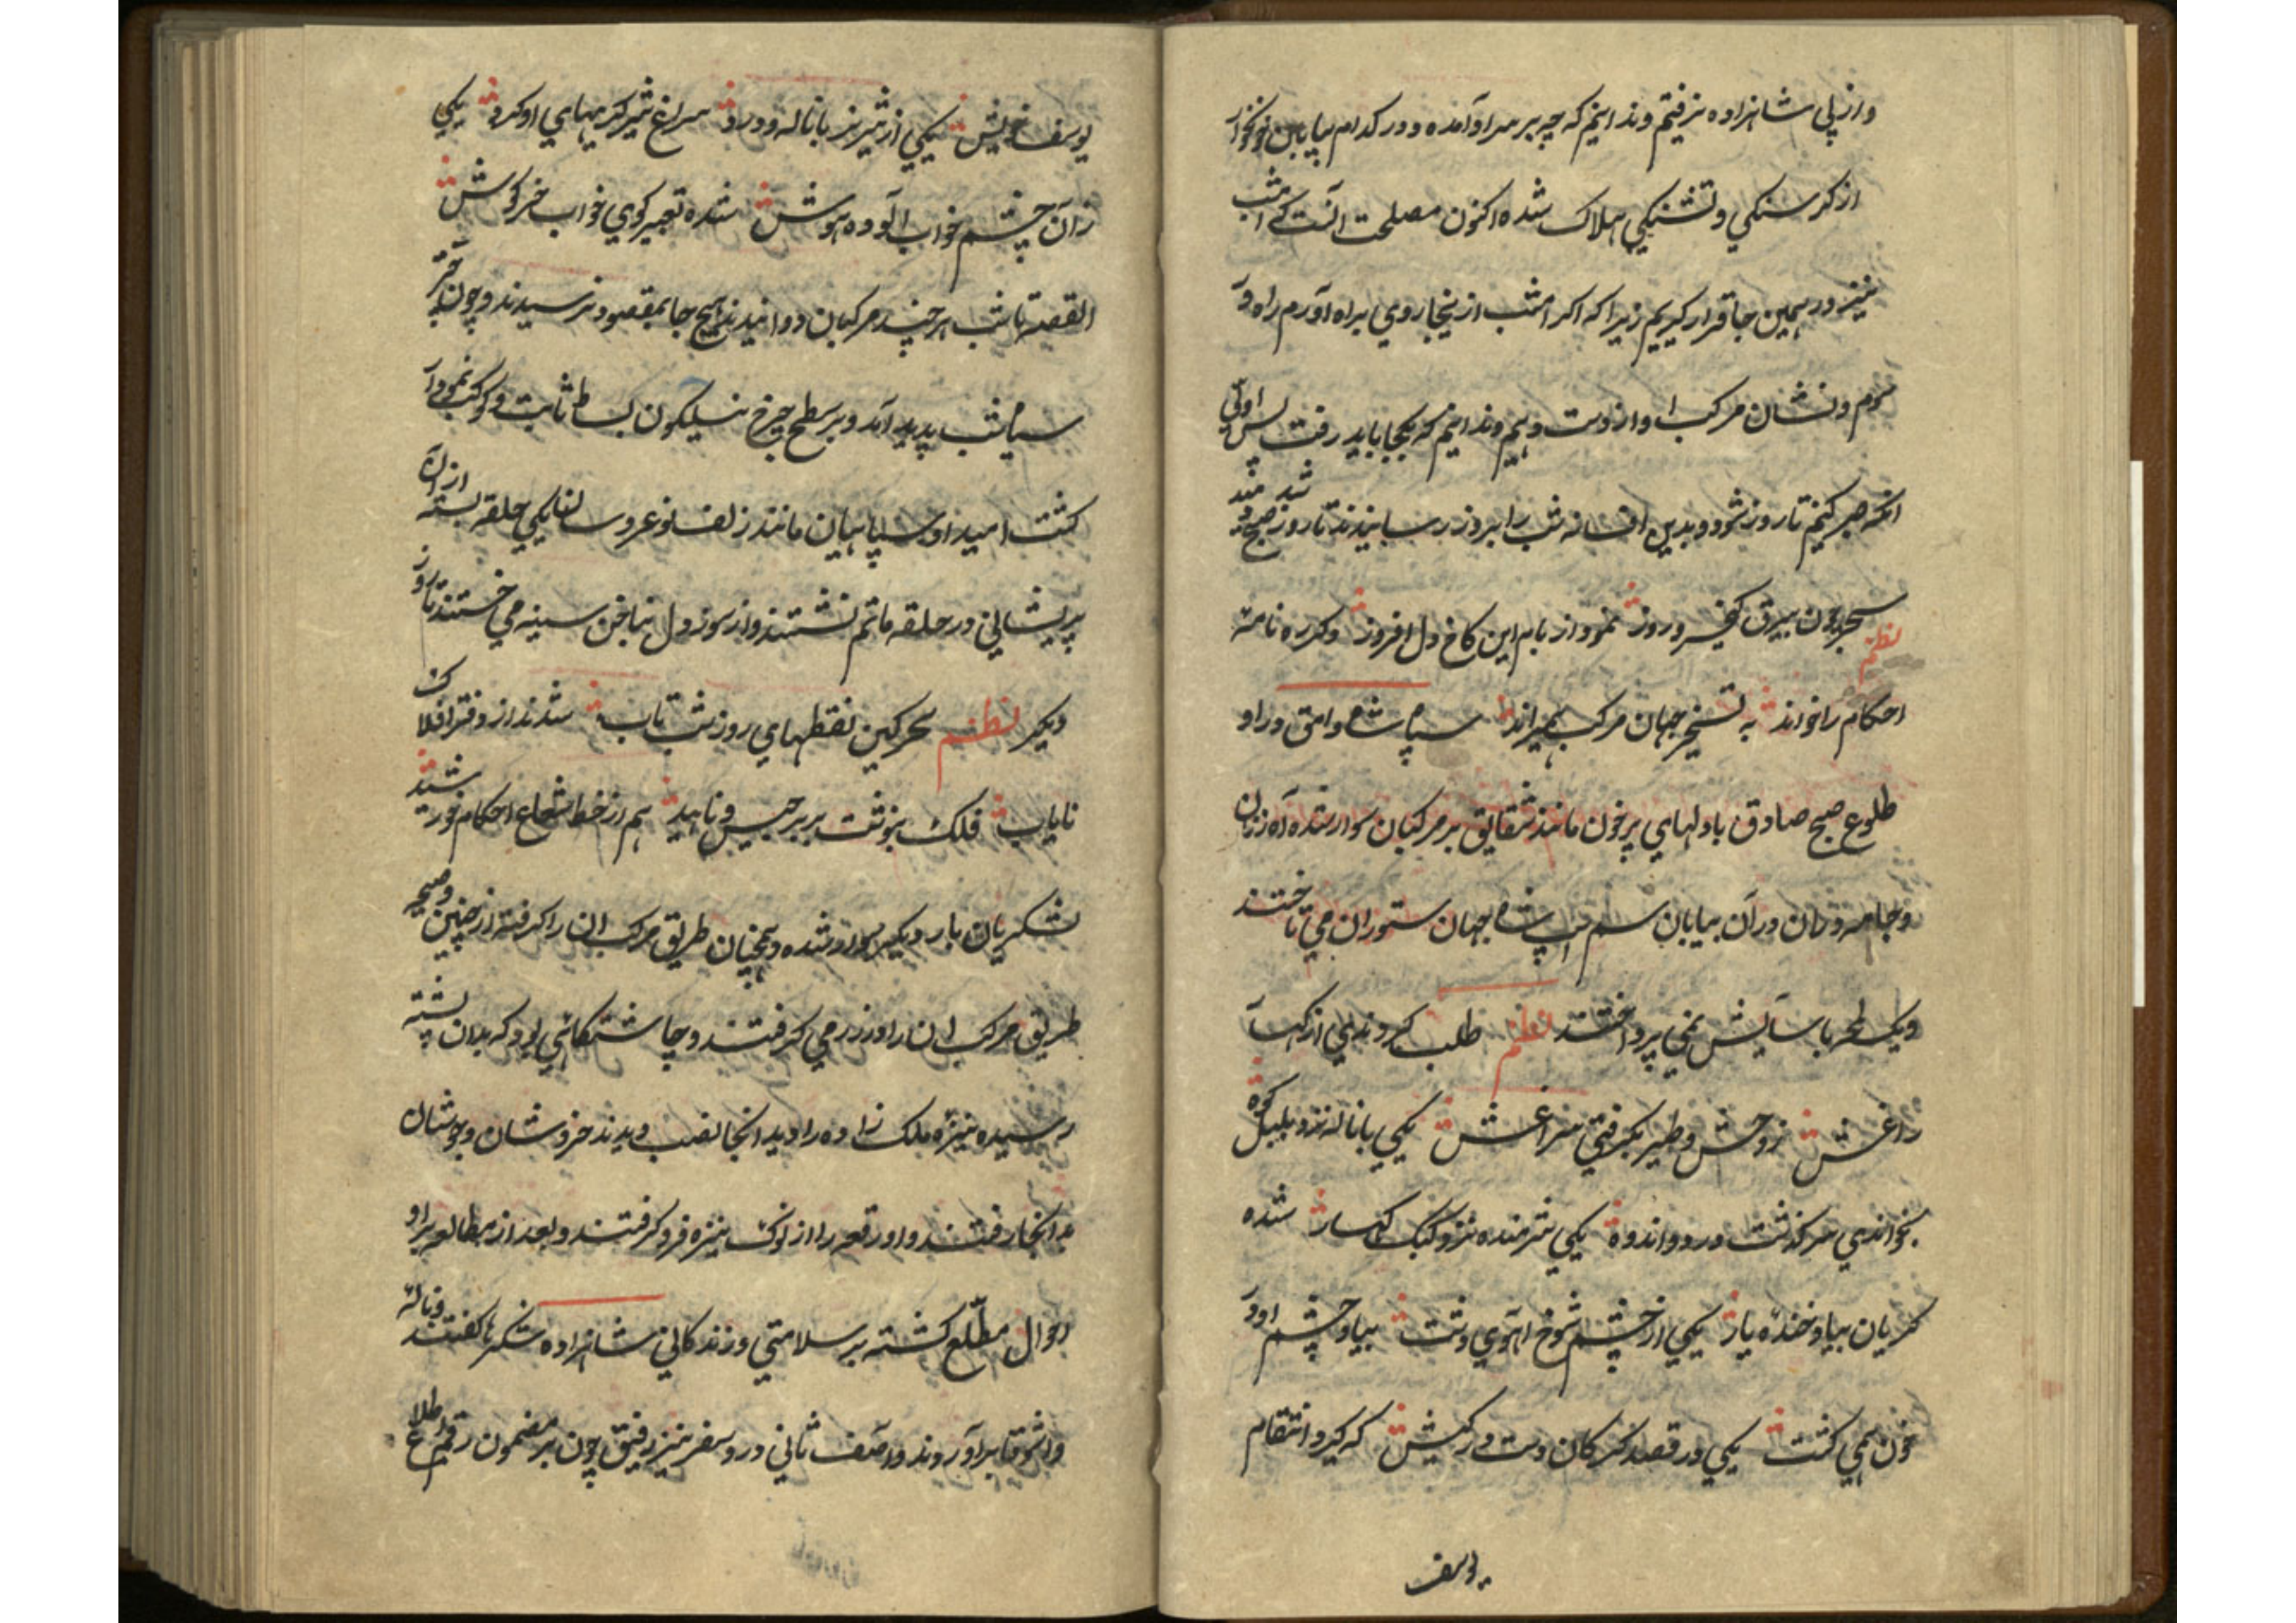 و از پی شاهزاده نرفتیم و ندانیم که چه بر سر او آمده و در کدام بیابان خونخوار
از کرسنکی و تشنکی هلاک شده اکنون مصلحت آنست که امشب
نیز در همین جا قرار کیریم زیرا که اکر امشب ازینجا روی براه آورم راه در
کرم و نشان مرکب او از دست دهیم و ندانیم که بکجا باید رفت پس اولی
انکه صبر کنیم تا روز شود و بدین افسانه شب را بروز رسانیدند تا روز صبح دمید
نظم
سحر چون بیرق کیخسرو روز نمود از بام این کاخ دل افروز دکر ره نامه
احکام را خواند به تسخیر جهان مرکب بهیر اند سپاه شاه وامق در او
طلوع صبح صادق با دلهای پر خون مانند شقایق بر مرکبان سوار شده آه زنان
و جامه دران در آن بیابان سم ستوران می تاختند
و یک لمحه باسایش نمی پرداختند نظم طلب کردندی از کبک
و زاغش ز وحش و طیر بکرفتی سراغش یکی با ناله نزد بلبل کوه
بخواندی سرکذشت درد و اندوه یکی شرمنده نزد کبک کهسار شده
کریان بیاد خنده یار یکی از چشم شوخ آهوی دشت بیاد چشم او در
خون همی کشت یکی در قصد کرکان دست در کیش که کیرد انتقام
یوسف
یوسف خویش یکی از شیر نر با ناله و درد سراغ شیر کیریهای او کرد یکی
زان چشم خواب آلوده بیهوش شده تعبیر کوی خواب خرکوش
القصه تا شب هر چند مرکبان دوانیدند هیچ جا بمقصود نرسیدند و چون چتر
سیاه شب پدید آمد و بر سطح چرخ نیلکون بساط ثابت و کوکب نمودار
کشت امید او سپاهیان مانند زلف نو عروسان یکی حلقه بسته از ان
پریشانی در حلقه ماتم نشستند و از سوز دل بناخن سینه می خستند تا روز
دیکر نظم سحر کین نقطهای روز شب تاب شدند از دفتر افلاک
نایاب فلک بنوشت بر برجیس و ناهید هم از خط شعاع احکام خورشید
لشکریان بار دیکر سوار شده و همچنان طریق مرکب ان را کرفته از چنین
طریق مرکب ان را در زر می کرفتند و چاشتکاهی بود که بدان پشته
رسیده نیزه ملک زاده را دید انجا نصب دیدند خروشان و جوشان
بدانجا رفتند و او رقعه را از نوک نیزه فرو کرفتند و بعد از مطالعه بر او
احوال مطلع کشته بر سلامتی و زندکانی شاهزاده شکرها کفتند و ناله
واشوقا بر آوردند و آصف ثانی در و سفر نیز رفیق چون بر مضمون رقم اطلاع